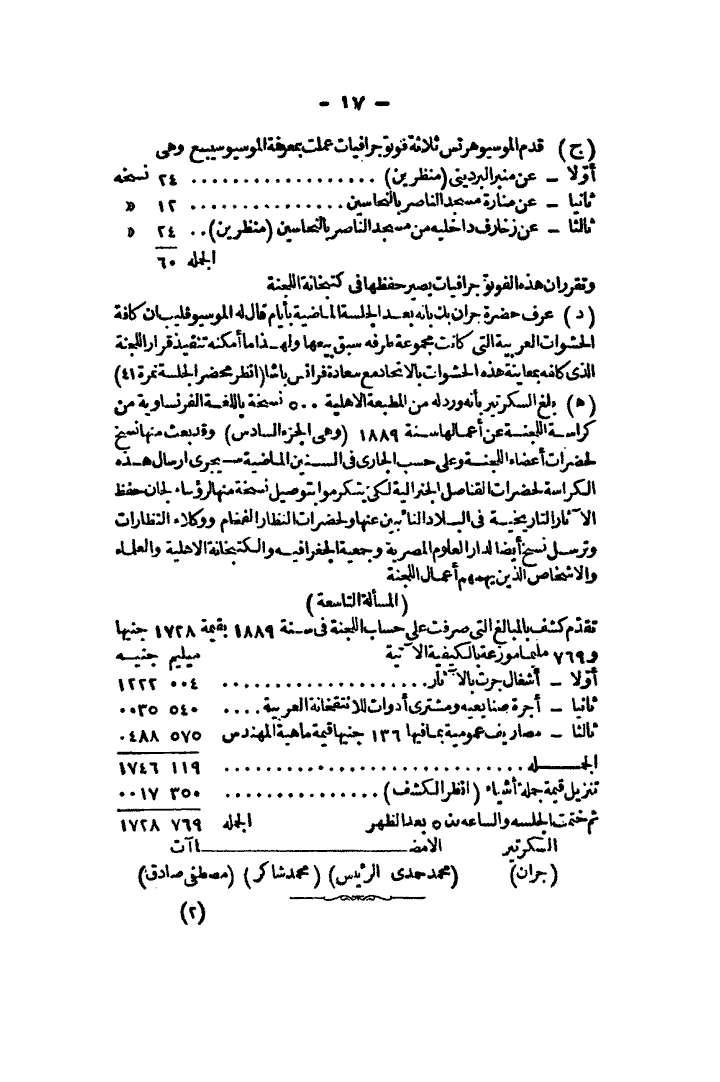 - ١٧ -
(ج) قدم الموسيو هرتس ثلاثة فوتوجرافيات عملت بمعرفة الموسيو سيبع وهى
أوّلا - عن منبر البرديني (منظرين) ................. ٢٤ نسخه
ثانيا - عن منارة مسجد الناصر بالنحاسين .............. ١٢ «
ثالثا - عن زخارف داخليه من مسجد الناصر بالنحاسين (منظرين) .. ٢٤ «
الجمله ٦٠
وتقرر ان هذه الفوتوجرافيات يصير حفظها فى كتبخانة اللجنة
(د) عرف حضرة جران بك بانه بعد الجلسة الماضية بأيام قال له الموسيو فليب ان كافة
الحشوات العربية التى كانت مجموعة بطرفه سبق بيعها ولهذا ما أمكنه تنفيذ قرار اللجنة
الذى كلفه بمعاينة هذه الحشوات بالاتحاد مع سعادة فرانس باشا (انظر محضر الجلسة نمرة ٤١)
(ه) بلغ السكرتير بأنه ورد له من المطبعة الاهلية ٥٠٠ نسخة باللغة الفرنساوية من
كراسة اللجنة عن أعمالها سنة ١٨٨٩ (وهى الجزء السادس) وقد بعث منها نسخ
لحضرات أعضاء اللجنة وعلى حسب الجارى فى السنين الماضية سيجرى ارسال هذه
الكراسة لحضرات القناصل الجنرالية لكى يتكرموا بتوصيل نسخة منها لرؤساء لجان حفظ
الآثار التاريخية فى البلاد النائبين عنها ولحضرات النظار الفخام ووكلاء النظارات
وترسل نسخ أيضا لدار العلوم المصرية وجمعية الجغرافيه والكتبخانة الاهلية والعلماء
والاشخاص الذين يهمهم أعمال اللجنة
(المسألة التاسعة)
تقدّم كشف بالمبالغ التى صرفت على حساب اللجنة فى سنة ١٨٨٩ بقيمة ١٧٢٨ جنيها
و٧٦٩ مليما موزعة بالكيفية الآتية مليم جنيه
أوّلا - أشغال جرت بالآثار .................... ٠٠٤ ١٢٢٢
ثانيا - أجرة صنايعيه ومشترى أدوات للانتقخانة العربية .... ٥٤٠ ٠٠٣٥
ثالثا - مصاريف عمومية بما فيها ١٣٦ جنيها قيمة ماهية المهندس ٥٧٥ ٠٤٨٨
الجمله ............................ ١١٩ ١٧٤٦
تنزيل قيمة جملة أشياء (انظر الكشف) ............... ٣٥٠ ٠٠١٧
ثم ختمت الجلسه والساعه ٥ بعد الظهر الجمله ٧٦٩ ١٧٢٨
السكرتير الامضاآت
(جران) (محمد حمدى الرئيس) (محمد شاكر) (مصطفى صادق)
(٢)